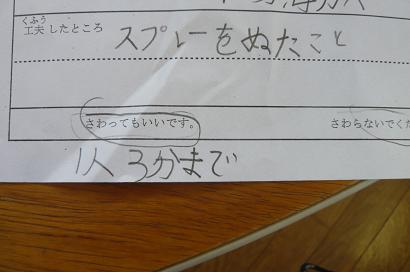 くふう
工夫したところ
スプレーをぬたこと
さわってもいいです。
さわらないでくだ
1人3分まで